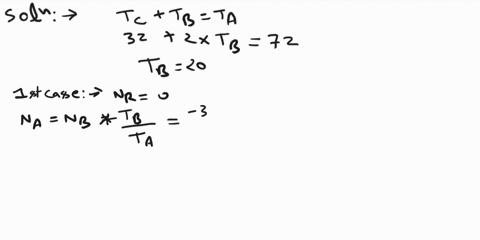 Soln:→ T_C + T_B = T_A
32 + 2 × T_B = 72
T_B = 20
1st case:→ N_R = 0
N_A = N_B * T_B / T_A = -3